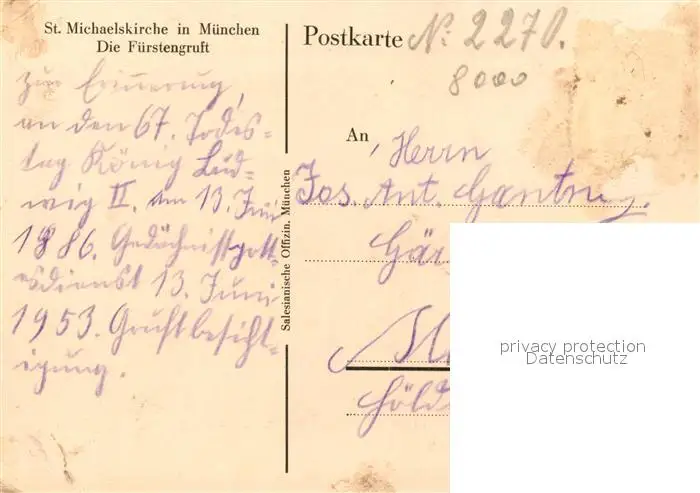 St. Michaelskirche in München
Die Fürstengruft
zur Erinnerung
an den 67. Todes-
tag König Lud-
wig II. am 13. Juni
1886. Gedächnissgott-
esdienst 13. Juni
1953. Gruftbesicht-
igung.
Salesianische Offizin. München
Postkarte
No: 2270.
8000
An
Herrn
Jos. Ant.
privacy protection
Datenschutz